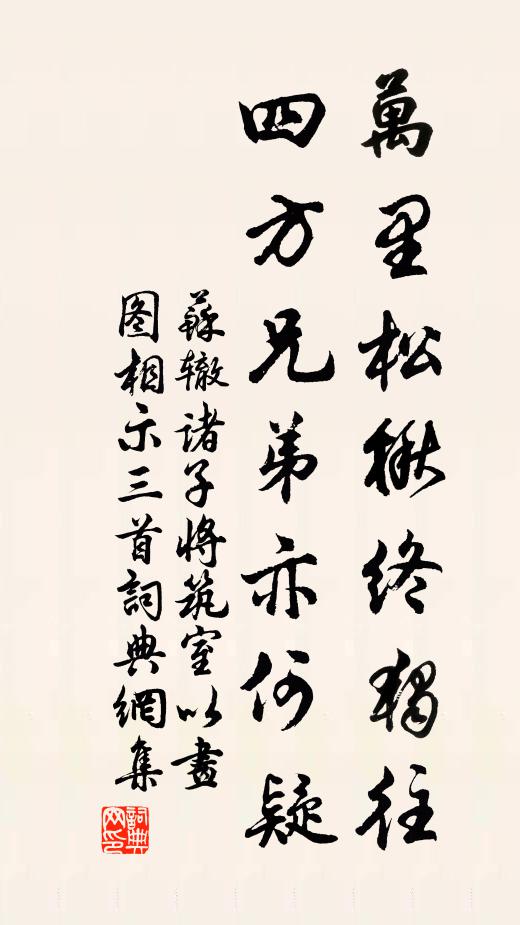 萬里松楸終獨往
四方兄弟亦何疑
蘇辙诸子将筑室以畫
图相示三首詞典網集
詞典网印